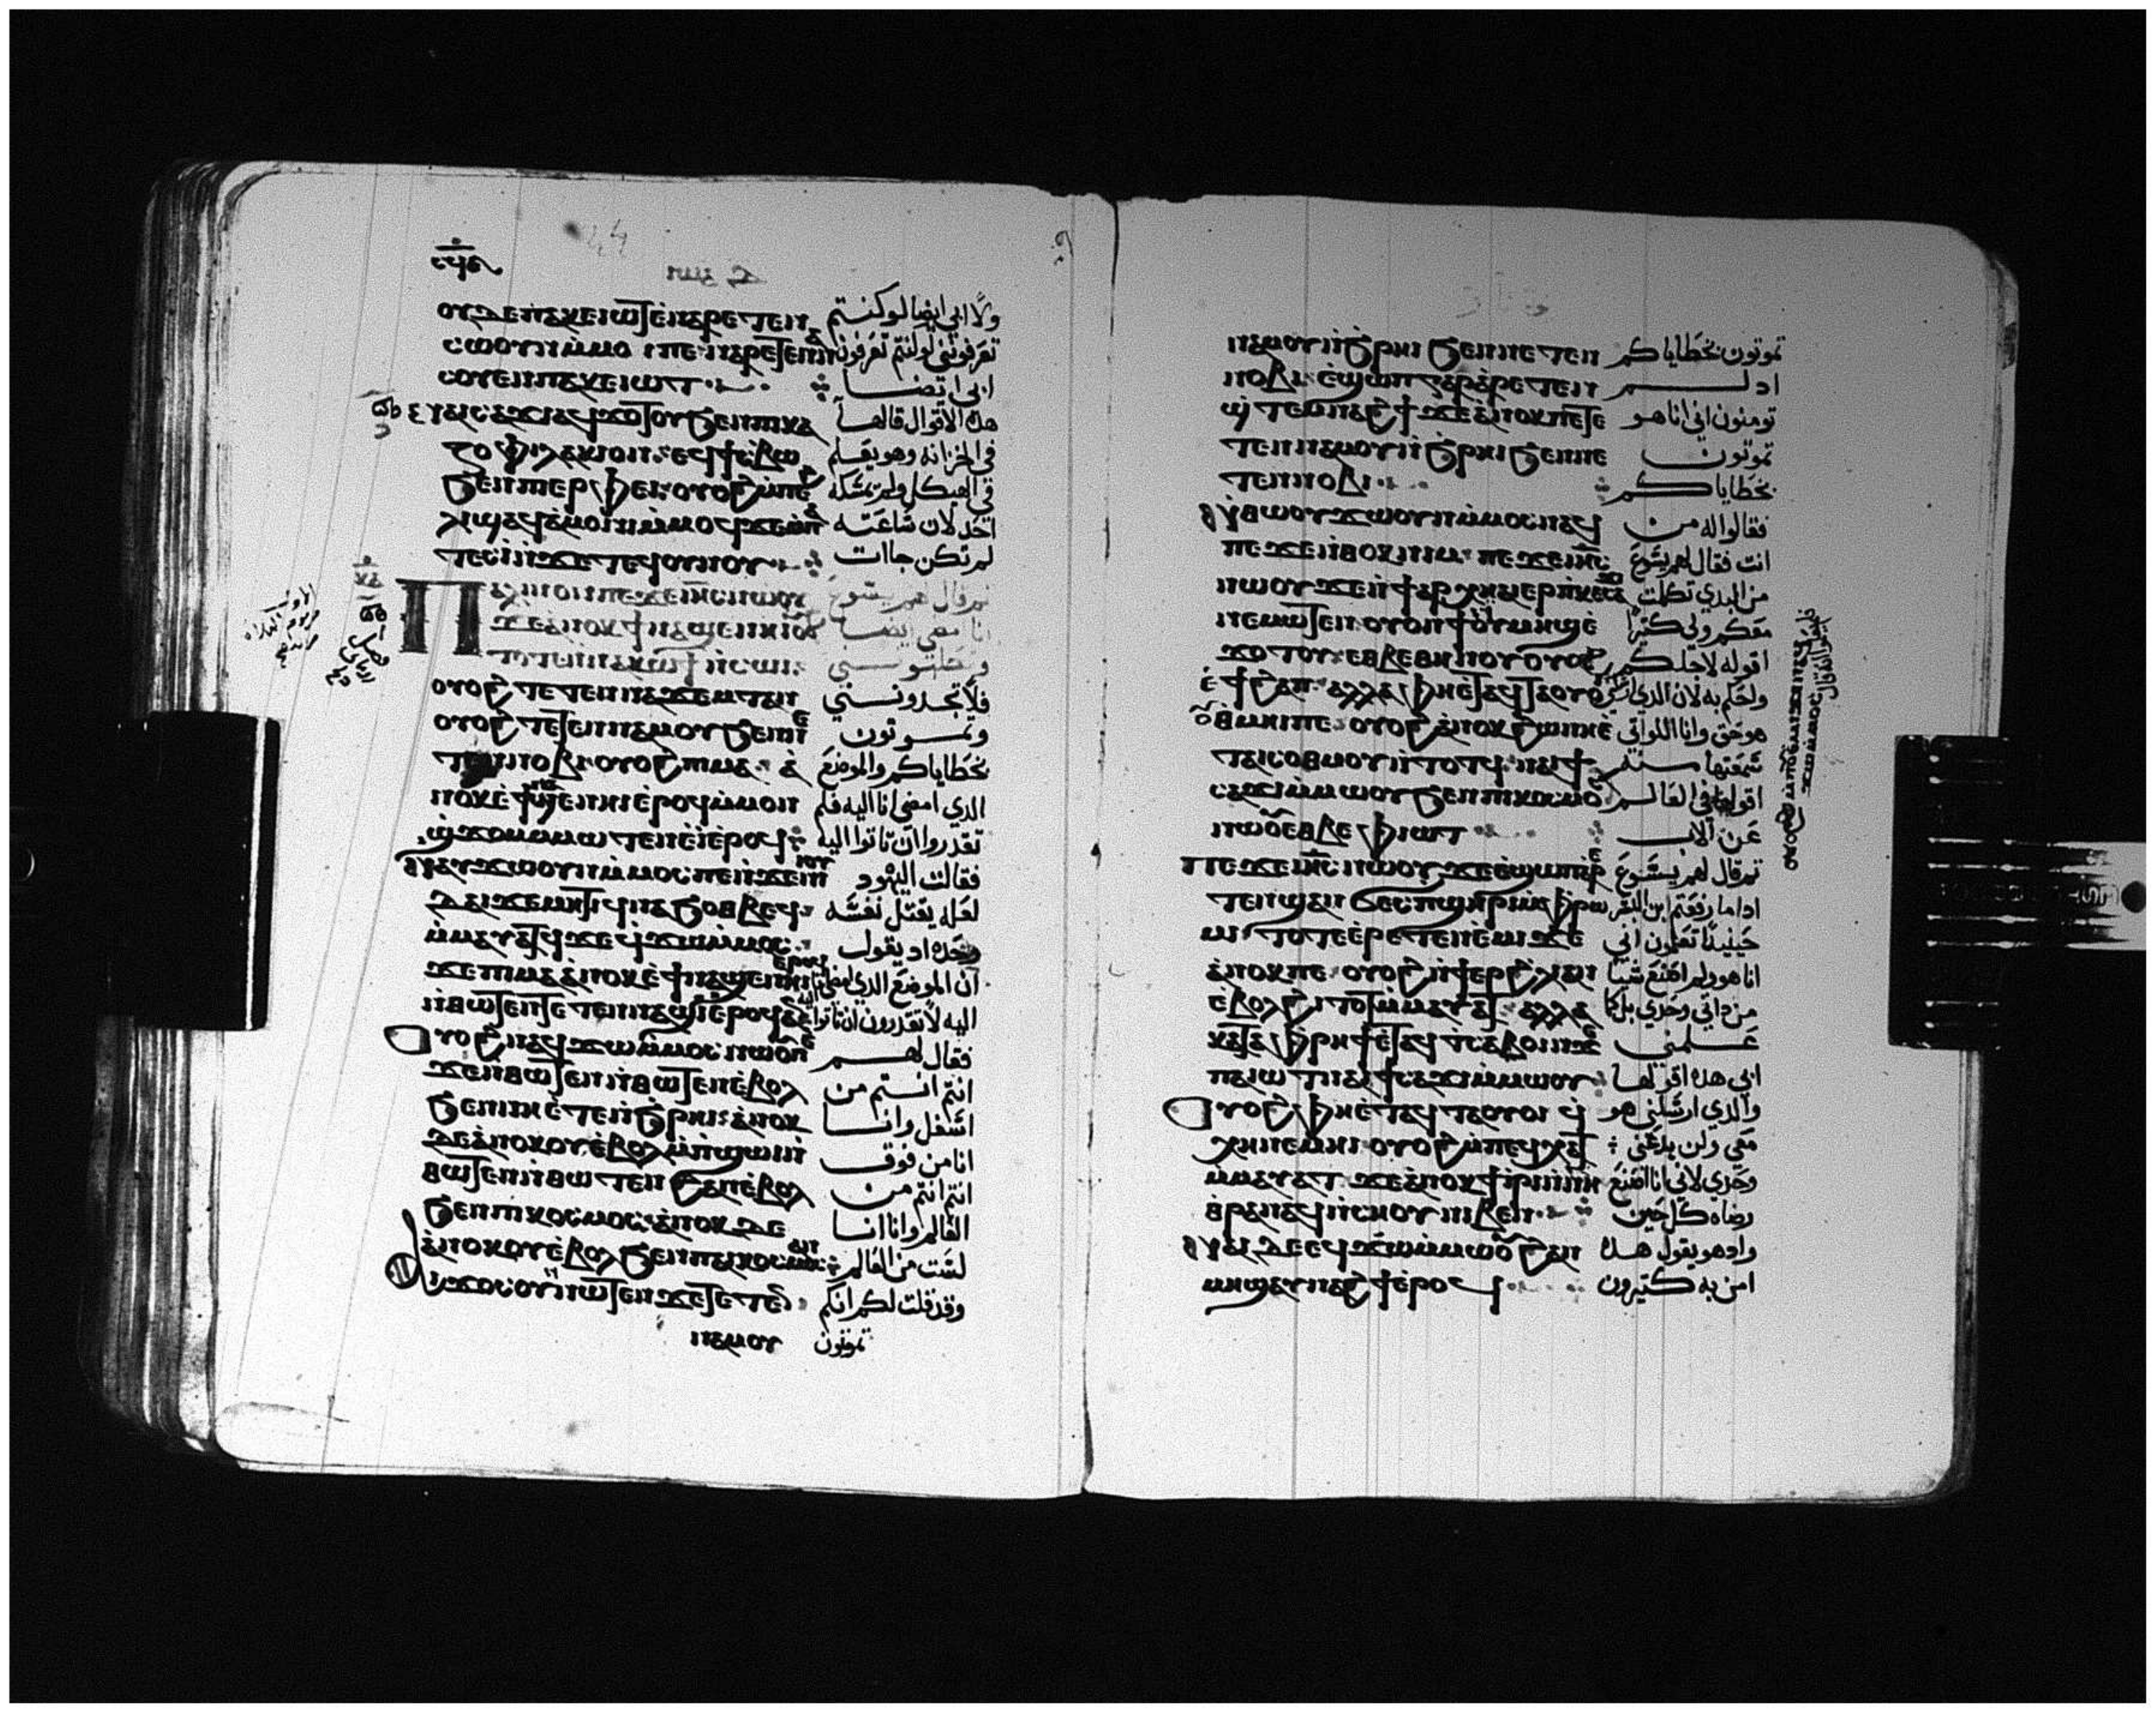 ⲟⲩⲇⲉ ⲡⲁⲕⲉⲓⲱⲧ ⲉⲛⲁⲣⲉⲧⲉⲛ ولا ابي ايضا لو كنتم
ⲥⲱⲟⲩⲛ ⲙⲙⲟⲓ ⲡⲉ ⲛⲁⲣⲉⲧⲉⲛⲛⲁ تعرفوني لكنتم تعرفون
ⲥⲟⲩⲉⲛ ⲡⲁⲕⲉⲓⲱⲧ ابي ايضا
ⲛⲁⲓⲥⲁϫⲓ ⲁϥϫⲟⲧⲟⲩ ϧⲉⲛ ⲡⲓⲅⲁ هده الاقوال قالها
ⲍⲟⲫⲩⲗⲁⲕⲓⲟⲛ ⲉϥϯⲥⲃⲱ في الخزانه وهو يعلم
ϧⲉⲛ ⲡⲓⲉⲣⲫⲉⲓ ⲟⲩⲟϩ ⲙⲡⲉ في الهيكل ولم يمسكه
ϩⲗⲓ ϣⲁϥⲁⲙⲟⲛⲓ ⲙⲙⲟϥ ϫⲉ ⲙⲡⲁ احد لان ساعته
ⲧⲉⲥⲓ ⲛϫⲉ ⲧⲉϥⲟⲩⲛⲟⲩ لم تكن جات
ⲡⲁⲗⲓⲛ ⲟⲛ ⲡⲉϫⲉ ⲓⲏⲥ ⲛⲱⲟⲩ ثم قال لهم يسوع
ϫⲉ ⲁⲛⲟⲕ ϯⲛⲁϣⲉⲛⲏⲓ ⲟⲩⲟϩ انا امضي ايضا
ⲧⲉⲧⲉⲛⲛⲁⲕⲱϯ ⲛⲥⲱⲓ وتطلبوني
ⲟⲩⲟϩ ⲧⲉⲧⲉⲛⲛⲁϫⲉⲙⲧ ⲁⲛ فلا تجدونني
ⲟⲩⲟϩ ⲧⲉⲧⲉⲛⲛⲁⲙⲟⲩ ϧⲉⲛ ⲛⲉ وتموتون
ⲧⲉⲛⲛⲟⲃⲓ ⲟⲩⲟϩ ⲡⲓⲙⲁ ⲁ بخطاياكم والموضع
ⲛⲟⲕ ⲉϯⲛⲁϣⲉⲛⲏⲓ ⲉⲣⲟϥ ⲙⲙⲟⲛ الدي امضي انا اليه فلم
ϣϫⲟⲙ ⲙⲙⲱⲧⲉⲛ ⲉⲓ ⲉⲣⲟϥ تقدروا ان تاتوا اليه
ⲛⲁⲩϫⲱ ⲟⲩⲛ ⲙⲙⲟⲥ ⲡⲉ ⲛϫⲉ ⲛⲓⲓⲟⲩ فقالت اليهود
ⲇⲁⲓ ϫⲉ ⲙⲏⲧⲓ ϥⲛⲁϧⲟⲑⲃⲉϥ لعله يقتل نفسه
ⲙⲙⲁⲩⲁⲧϥ ϫⲉ ϥϫⲱ ⲙⲙⲟⲥ وحده اد يقول
ϫⲉ ⲡⲓⲙⲁ ⲁⲛⲟⲕ ⲉϯⲛⲁϣⲉⲛⲏⲓ ⲉⲣⲟϥ ان الموضع الدي امضي انا اليه
ⲛⲑⲱⲧⲉⲛ ⲧⲉⲧⲉⲛⲛⲁϣⲓ ⲉⲣⲟϥ ⲁⲛ اليه لا تقدرون ان تاتوا
ⲟⲩⲟϩ ⲛⲁϥϫⲱ ⲙⲙⲟⲥ ⲛⲱⲟⲩ ⲡⲉ فقال لهم
ϫⲉ ⲛⲑⲱⲧⲉⲛ ⲛⲑⲱⲧⲉⲛ ϩⲁⲛⲉⲃⲟⲗ انتم انتم من
ϧⲉⲛ ⲛⲏⲉⲧⲉⲛϧⲣⲏⲓ ⲁⲛⲟⲕ اسفل وانا
ⲇⲉ ⲁⲛⲟⲕ ⲟⲩⲉⲃⲟⲗ ⲙⲡϣⲱⲓ انا من فوق
ⲛⲑⲱⲧⲉⲛ ⲛⲑⲱⲧⲉⲛ ϩⲁⲛⲉⲃⲟⲗ انتم انتم من
ϧⲉⲛ ⲡⲓⲕⲟⲥⲙⲟⲥ ⲁⲛⲟⲕ ⲇⲉ العالم وانا انا
ⲁⲛⲟⲕ ⲟⲩⲉⲃⲟⲗ ϧⲉⲛ ⲡⲁⲓⲕⲟⲥⲙⲟⲥ ⲁⲛ لست من العالم
ⲁⲓϫⲟⲥ ⲟⲩⲛ ⲛⲱⲧⲉⲛ ϫⲉ ⲧⲉⲧⲉⲛ وقد قلت لكم انكم
ⲛⲁⲙⲟⲩ تموتون
ⲛⲁⲙⲟⲩ ⲛϧⲣⲏⲓ ϧⲉⲛ ⲛⲉⲧⲉⲛ تموتون بخطاياكم
ⲛⲟⲃⲓ ⲉϣⲱⲡ ⲅⲁⲣ ⲁⲣⲉⲧⲉⲛ اد لم
ϣⲧⲉⲙⲛⲁϩϯ ϫⲉ ⲁⲛⲟⲕ ⲡⲉ ⲧⲉ تومنون اني انا هو
ⲧⲉⲛⲛⲁⲙⲟⲩ ⲛϧⲣⲏⲓ ϧⲉⲛ ⲛⲉ تموتون
ⲧⲉⲛⲛⲟⲃⲓ بخطاياكم
ⲛⲁⲩϫⲱ ⲟⲩⲛ ⲙⲙⲟⲥ ⲛⲁϥ فقالوا له من
ⲡⲉ ϫⲉ ⲛⲑⲟⲕ ⲛⲓⲙ ⲡⲉϫⲉ ⲓⲏⲥ انت فقال لهم يسوع
ⲛⲱⲟⲩ ϫⲉ من البدي تكلمت
ⲛⲉⲙⲱⲧⲉⲛ ⲟⲩⲟⲛϯ ⲟⲩⲙⲏϣ ⲉ معكم ولي كثيرا
ϫⲟⲧⲟⲩ ⲉⲑⲃⲉ ⲑⲏⲛⲟⲩ ⲟⲩⲟϩ اقوله لاجلكم
ⲉϯϩⲁⲡ ⲁⲗⲗⲁ ⲫⲏⲉⲧⲁϥⲧⲁⲟⲩⲟⲓ واحكم به لان الدي ارسلني
ⲟⲩⲑⲙⲏⲓ ⲡⲉ ⲟⲩⲟϩ ⲁⲛⲟⲕ ϩⲱ ⲛⲏⲉ هو حق وانا اللواتي
ⲧⲁⲓⲥⲟⲑⲙⲟⲩ ⲛⲧⲟⲧϥ ⲛⲁⲓ ϯ سمعتها منه
ⲥⲁϫⲓ ⲙⲙⲱⲟⲩ ϧⲉⲛ ⲡⲓⲕⲟⲥⲙⲟⲥ اقولها في العالم
ⲛⲱⲟⲩ ⲉⲑⲃⲉ ⲫⲓⲱⲧ عن الاب
ⲡⲉϫⲉ ⲓⲏⲥ ⲛⲱⲟⲩ ϫⲉ ⲉϣⲱⲡ ⲁⲣⲉ ثم قال لهم يسوع
ⲧⲉⲛϣⲁⲛϭⲉⲥ ⲡϣⲏⲣⲓ ⲙⲫⲣⲱ ادا ما رفعتم ابن البشر
ⲙⲓ ⲧⲟⲧⲉ ⲉⲣⲉⲧⲉⲛⲉⲙⲓ ϫⲉ حينيدا تعلمون اني
ⲁⲛⲟⲕ ⲡⲉ ⲟⲩⲟϩ ⲛϯⲉⲣ ϩⲗⲓ ⲁⲛ انا هو ولم اصنع شيا
ⲉⲃⲟⲗ ϩⲓⲧⲟⲧ ⲙⲙⲁⲩⲁⲧ ⲁⲗⲗⲁ من داتي وحدي بل كما
ⲕⲁⲧⲁ ⲫⲣⲏϯ ⲉⲧⲁϥⲧⲥⲁⲃⲟⲓ ⲛϫⲉ علمني
ⲡⲁⲓⲱⲧ ⲛⲁⲓ ϯⲥⲁϫⲓ ⲙⲙⲱⲟⲩ ابي هده اقولها
ⲟⲩⲟϩ ⲫⲏⲉⲧⲁϥⲧⲁⲟⲩⲟⲓ ϥ والدي ارسلني هو
ⲭⲏ ⲛⲉⲙⲏⲓ ⲟⲩⲟϩ ⲙⲡⲉϥⲭⲁⲧ معي ولن يدعني
ⲙⲙⲁⲩⲁⲧ ϫⲉ ⲁⲛⲟⲕ ϯⲓⲣⲓ ⲛⲛⲏ وحدي لاني انا اصنع
ⲉⲑⲣⲁⲛⲁϥ ⲛⲥⲏⲟⲩ ⲛⲓⲃⲉⲛ رضاه كل حين
ⲛⲁⲓ ⲇⲉ ⲉϥϫⲱ ⲙⲙⲱⲟⲩ ϩⲁⲛ واد هو يقول هده
ⲙⲏϣ ⲁⲩⲛⲁϩϯ ⲉⲣⲟϥ امن به كتيرون